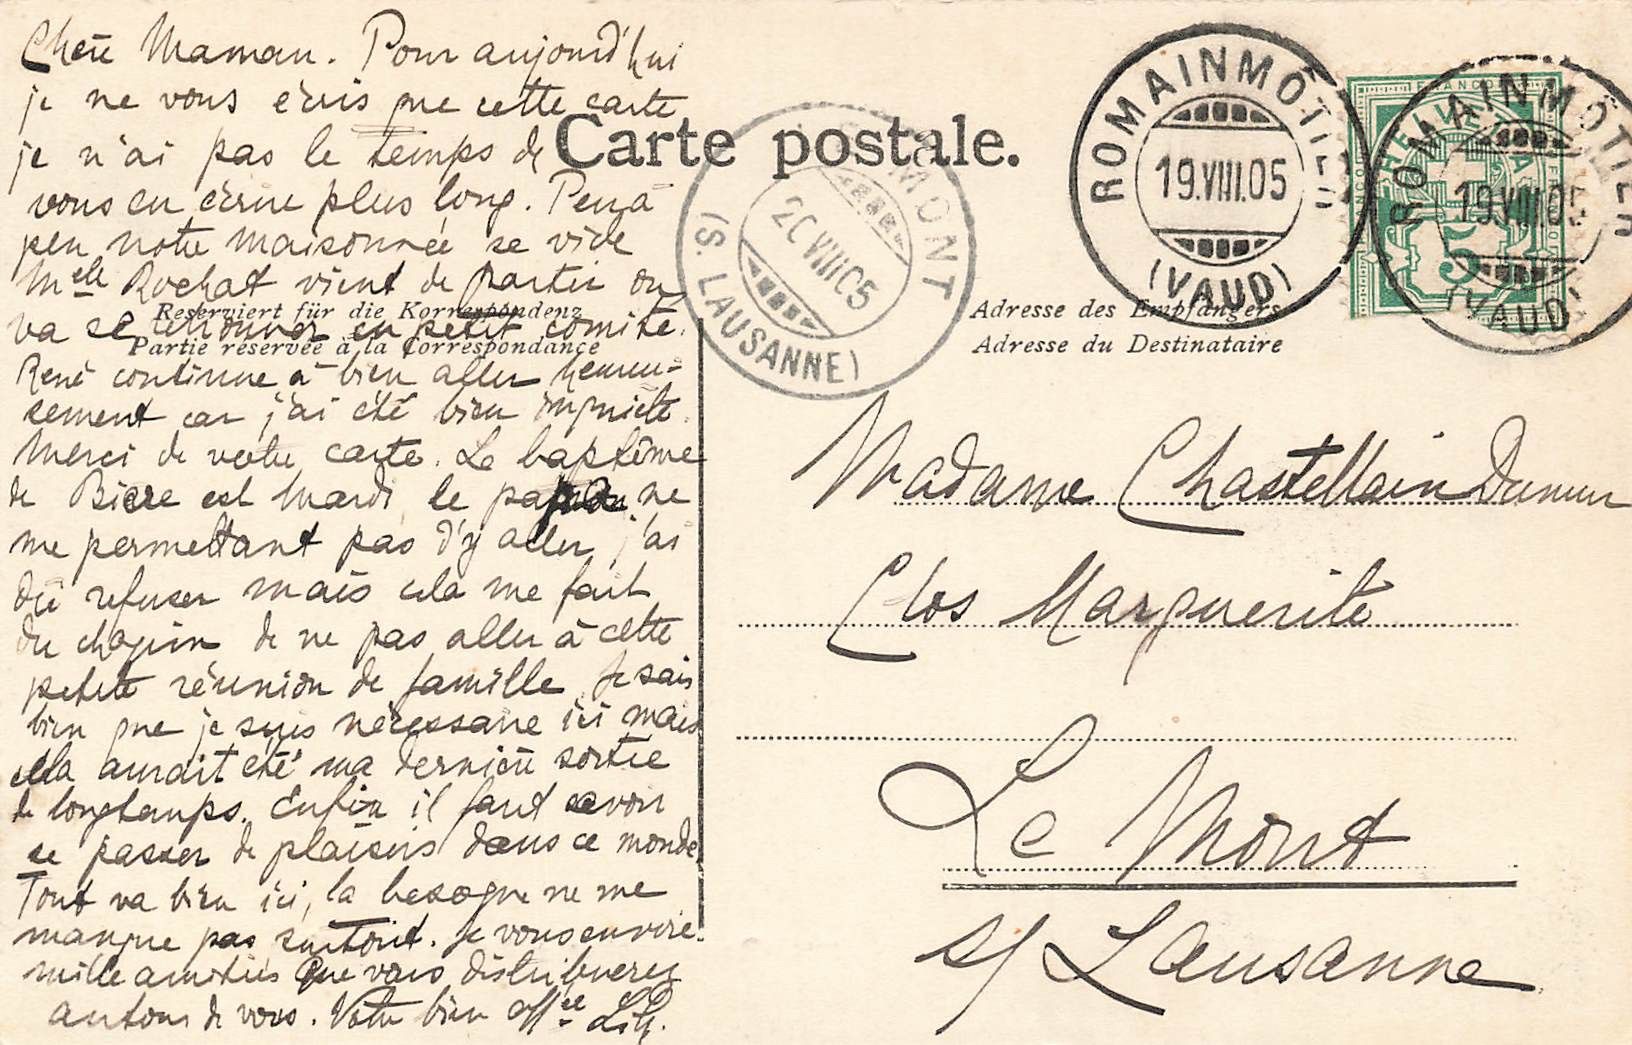 Chère Maman. Pour aujourd'hui
je ne vous écris que cette carte
je n'ai pas le temps de
vous en écrire plus long. Peu à
peu notre maisonnée se vide
Melle Rochat vient de partir on
va se retrouver en petit comité.
René continue à bien aller heureu-
sement car j'ai été bien inquiète.
Merci de votre carte. Le baptême
de Bière est Mardi, le ne
me permettant pas d'y aller, j'ai
dû refuser mais cela me fait
du chagrin de ne pas aller à cette
petite réunion de famille. Je sais
bien que je suis nécessaire ici mais
cela aurait été ma dernière sortie
de longtemps. Enfin il faut savoir
se passer de plaisirs dans ce monde.
Tout va bien ici, la besogne ne me
manque pas surtout. Je vous envoie
mille amitiés que vous distribuerez
autour de vous. Votre bien affee Lily.
Carte postale.
Reserviert für die Korrespondenz
Partie réservée à la Correspondance
Adresse des Empfängers
Adresse du Destinataire
ROMAINMÔTIER
19.VIII.05
(VAUD)
ROMAINMÔTIER
19.VIII.05
(VAUD)
FRANCO
HELVETIA
5
MONT
20.VIII.05
(S. LAUSANNE)
Madame Chastellain Dumur
Clos Marguerite
Le Mont
s/ Lausanne